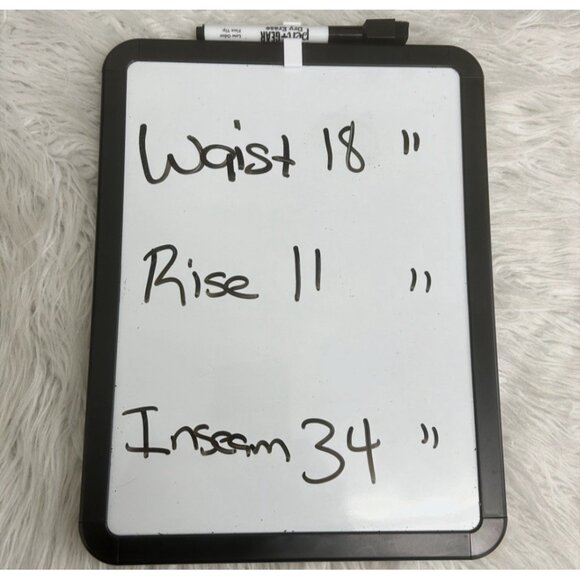 Pen+GEAR
Dry Erase
Low Odor
Fine Tip
Waist 18 "
Rise 11 "
Inseam 34 "